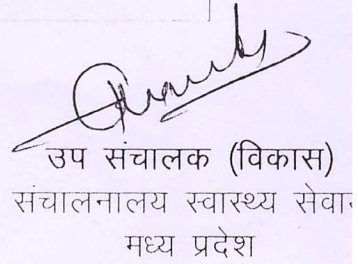 उप संचालक (विकास)
संचालनालय स्वास्थ्य सेवा
मध्य प्रदेश